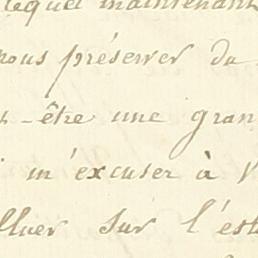 lequel maintenant
nous préserver du
t-être une gran
m'excuser à V
fluer sur l'est